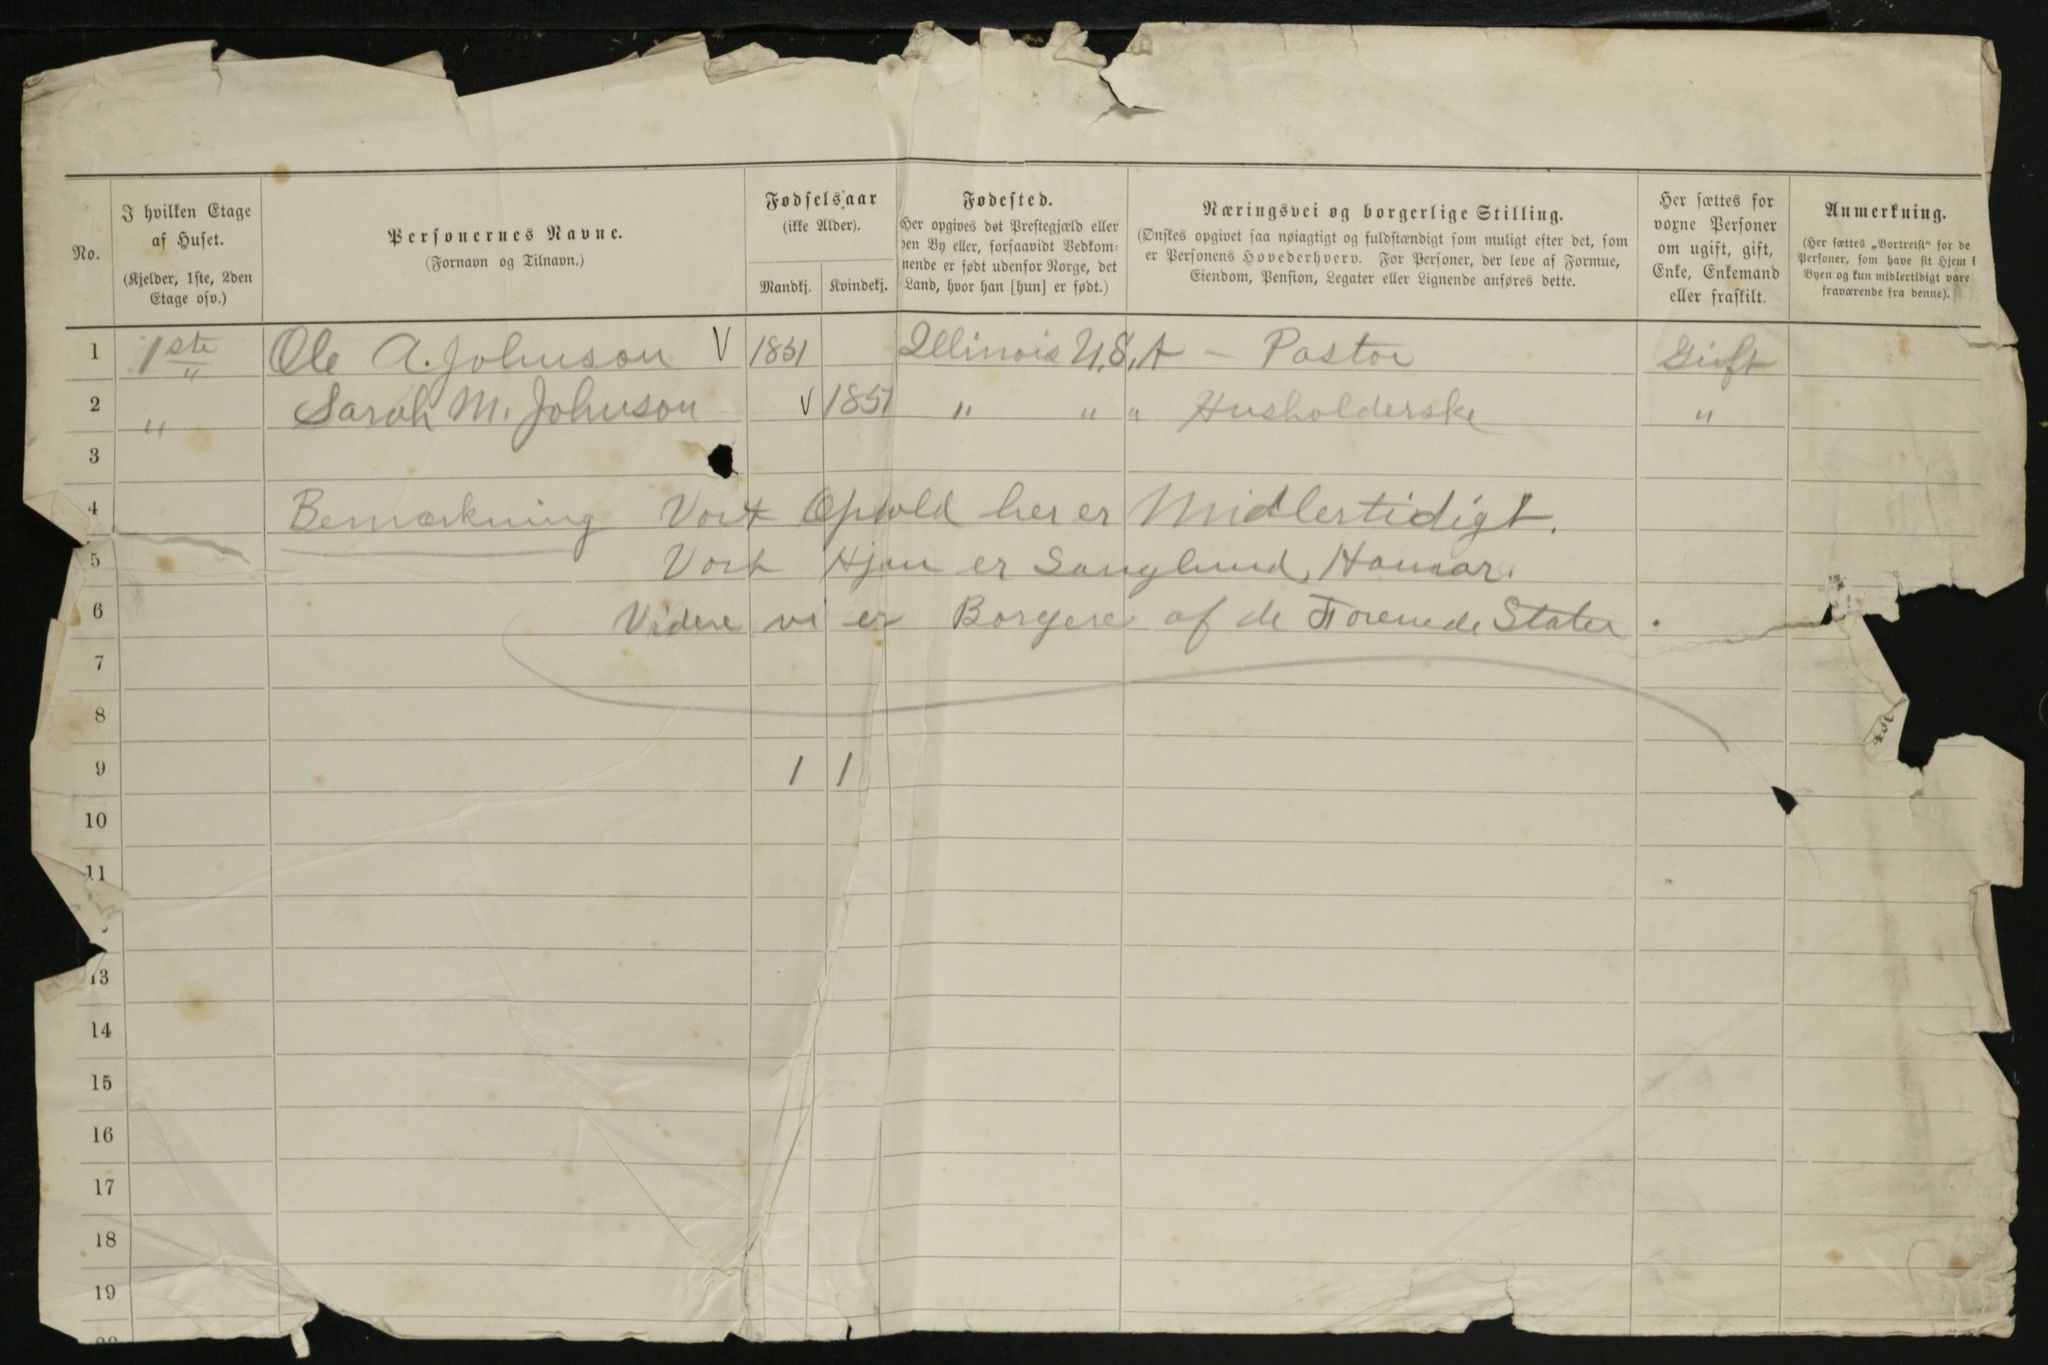 No.
I hvilken Etage
af Huset.
(Kjelder, 1ste, 2den
Etage osv.)
Personernes Navne.
(Fornavn og Tilnavn.)
Fødselsaar
(ikke Alder).
Mandkj. Kvindekj.
Fødested.
(Her opgives det Prestegjæld eller
den By eller, forsaavidt Vedkom-
nende er født udenfor Norge, det
Land, hvor han [hun] er født.)
Næringsvei og borgerlige Stilling.
(Ønskes opgivet saa nøiagtigt og fuldstændigt som muligt efter det, som
er Personens Hovederhverv. For Personer, der leve af Formue,
Eiendom, Pension, Legater eller Lignende anføres dette.
Her sættes for
voxne Personer
om ugift, gift,
Enke, Enkemand
eller fraskilt.
Anmerkning.
(Her sættes „Bortreist“ for de
Personer, som have sit Hjem i
Byen og kun midlertidigt vare
fraværende fra denne).
1 1ste Ole A. Johnson V 1851 Illinois U.S.A – Pastor Gift
2 " Sarah M. Johnson V 1851 " " " Husholderske "
3
4 Bemærkning Vort Ophold her er Midlertidigt.
5 Vort Hjem er Sanglund, Hamar.
6 Videre vi er Borgere af de Forenede Stater.
7
8
9 1 1
10
11
13
14
15
16
17
18
19